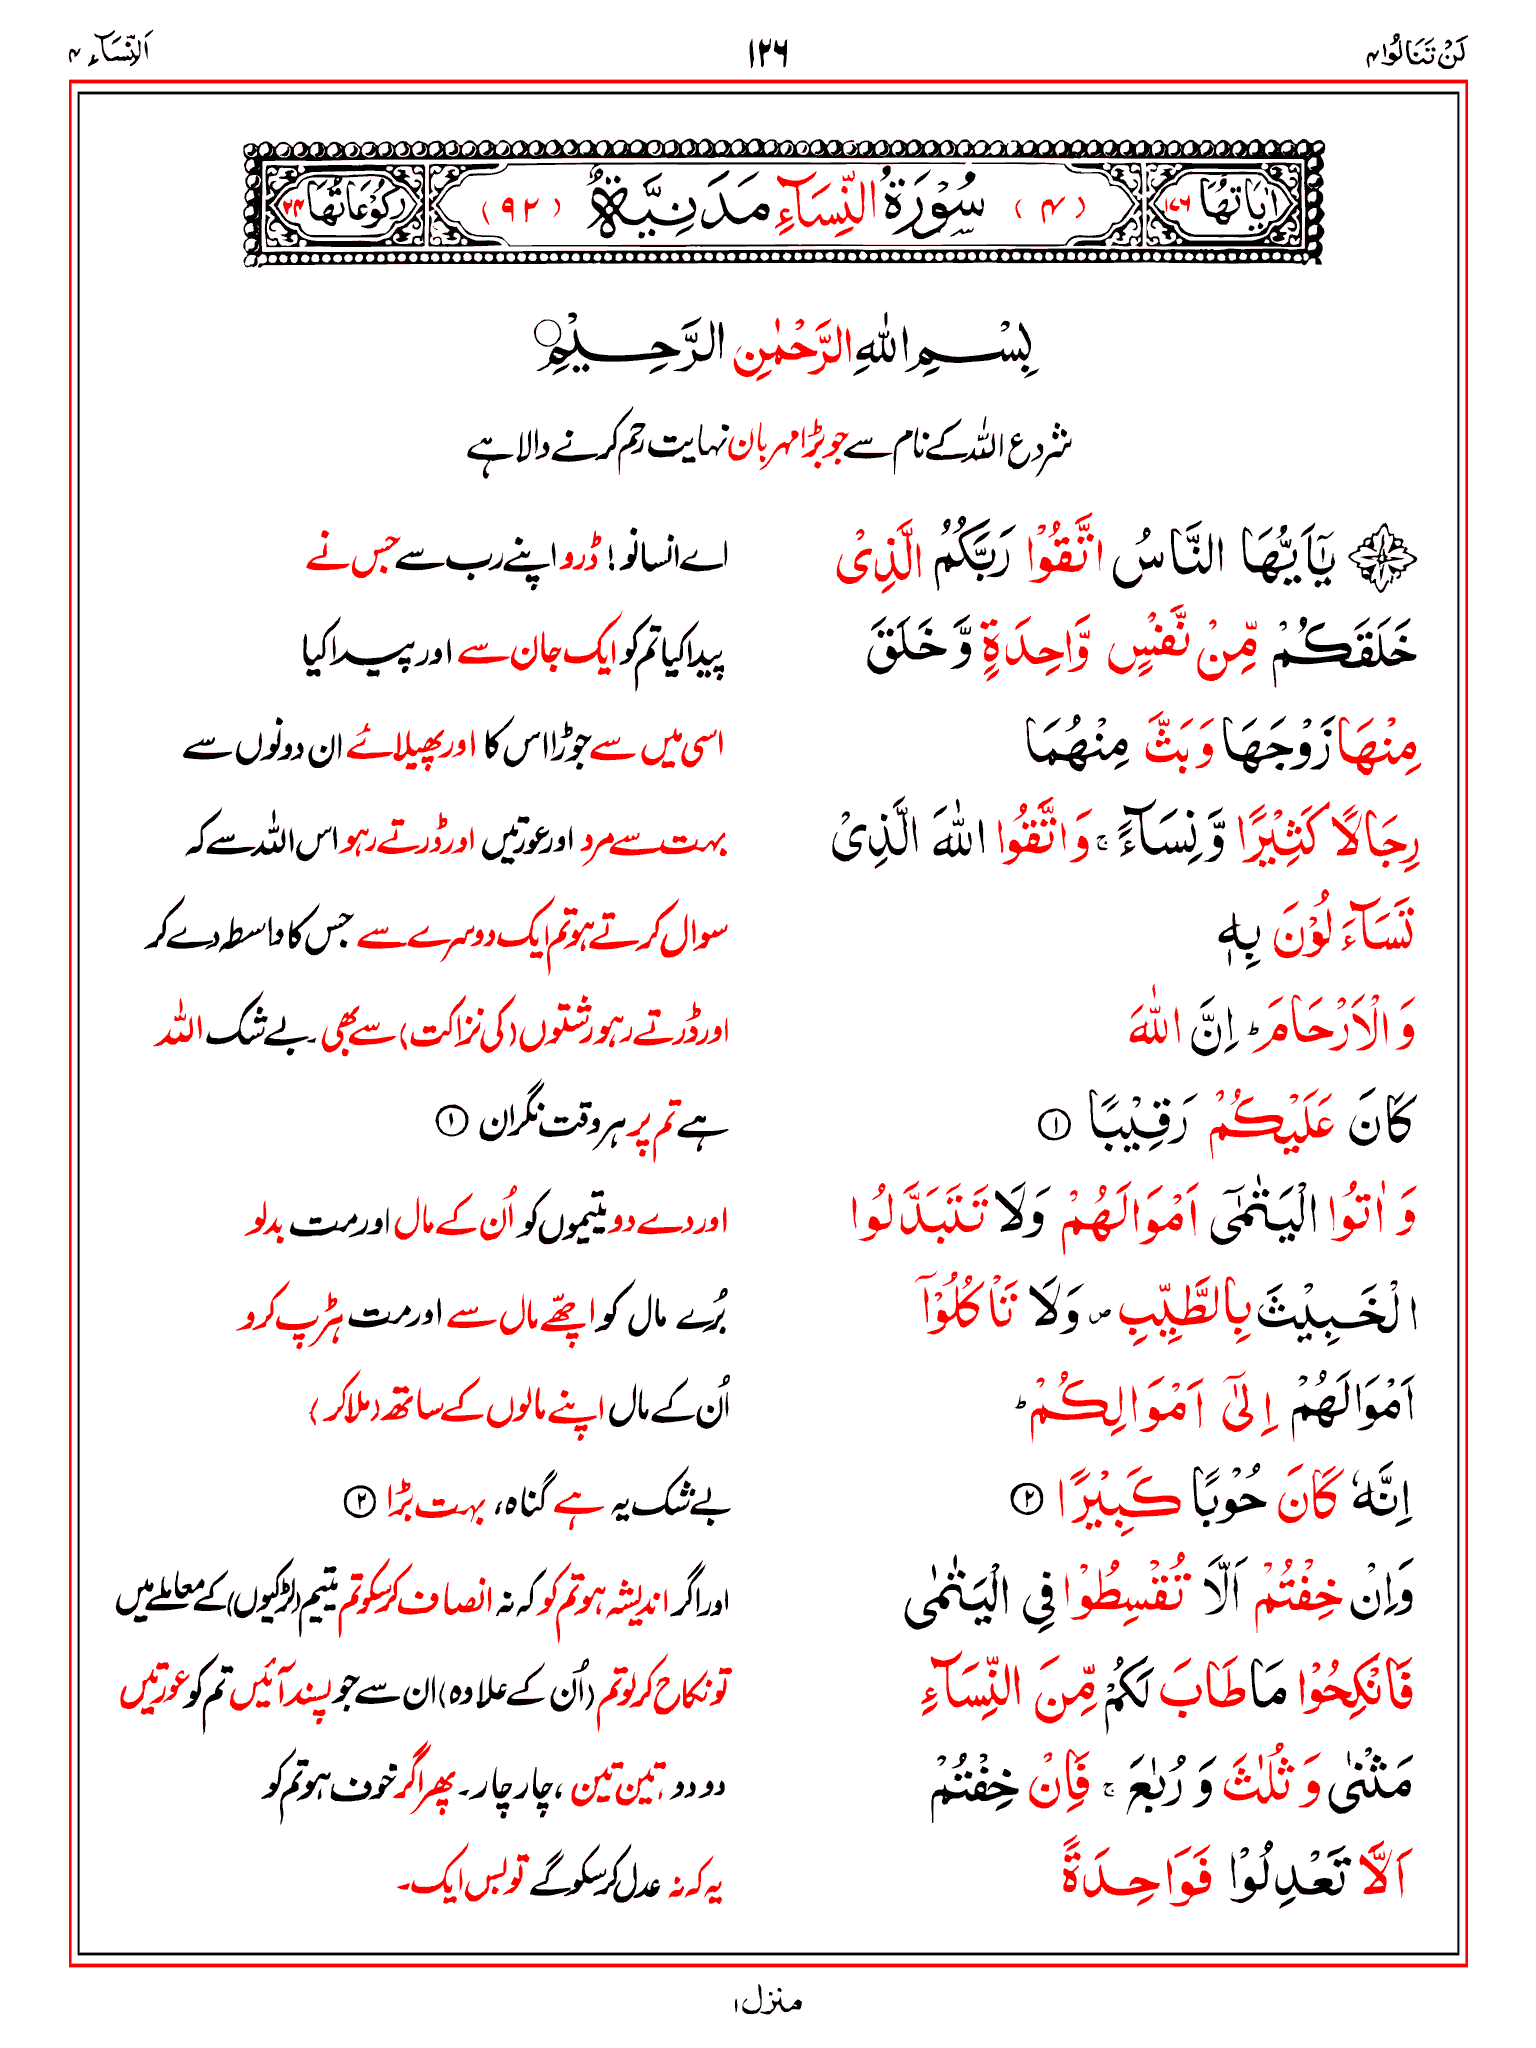 لَنْ تَنَالُوا ۴ ۱۲۶ اَلنِّسَآء ۴
اٰیَاتُهَا ۱۷۶ (۴) سُوْرَةُ النِّسَآءِ مَدَنِیَّةٌ (۹۲) رُکُوْعَاتُهَا ۲۴
بِسْمِ اللّٰهِ الرَّحْمٰنِ الرَّحِیْمِ○
شروع اللہ کے نام سے جو بڑا مہربان نہایت رحم کرنے والا ہے
یٰۤاَیُّهَا النَّاسُ اتَّقُوْا رَبَّكُمُ الَّذِیْ اے انسانو! ڈرو اپنے رب سے جس نے
خَلَقَكُمْ مِّنْ نَّفْسٍ وَّاحِدَةٍ وَّ خَلَقَ پیدا کیا تم کو ایک جان سے اور پیدا کیا
مِنْهَا زَوْجَهَا وَ بَثَّ مِنْهُمَا اسی میں سے جوڑا اس کا اور پھیلائے ان دونوں سے
رِجَالًا كَثِیْرًا وَّ نِسَآءً ۚ وَ اتَّقُوا اللّٰهَ الَّذِیْ بہت سے مرد اور عورتیں اور ڈرتے رہو اس اللہ سے کہ
تَسَآءَلُوْنَ بِهٖ سوال کرتے ہو تم ایک دوسرے سے جس کا واسطہ دے کر
وَ الْاَرْحَامَ ؕ اِنَّ اللّٰهَ اور ڈرتے رہو رشتوں (کی نزاکت) سے بھی۔ بے شک اللہ
كَانَ عَلَیْكُمْ رَقِیْبًا ① ہے تم پر ہر وقت نگران ①
وَ اٰتُوا الْیَتٰمٰۤی اَمْوَالَهُمْ وَلَا تَتَبَدَّلُوا اور دے دو یتیموں کو اُن کے مال اور مت بدلو
الْخَبِیْثَ بِالطَّیِّبِ ۪ وَلَا تَاْكُلُوْۤا بُرے مال کو اچھے مال سے اور مت ہڑپ کرو
اَمْوَالَهُمْ اِلٰۤی اَمْوَالِكُمْ ؕ اُن کے مال اپنے مالوں کے ساتھ (ملا کر)
اِنَّهٗ كَانَ حُوْبًا كَبِیْرًا ② بے شک یہ ہے گناہ، بہت بڑا ②
وَاِنْ خِفْتُمْ اَلَّا تُقْسِطُوْا فِی الْیَتٰمٰی اور اگر اندیشہ ہو تم کو کہ نہ انصاف کر سکو تم یتیم (لڑکیوں) کے معاملے میں
فَانْكِحُوْا مَا طَابَ لَكُمْ مِّنَ النِّسَآءِ تو نکاح کر لو تم (اُن کے علاوہ) ان سے جو پسند آئیں تم کو عورتیں
مَثْنٰی وَ ثُلٰثَ وَ رُبٰعَ ۚ فَاِنْ خِفْتُمْ دو دو، تین تین، چار چار۔ پھر اگر خوف ہو تم کو
اَلَّا تَعْدِلُوْا فَوَاحِدَةً یہ کہ نہ عدل کر سکو گے تو بس ایک۔
منزل ۱